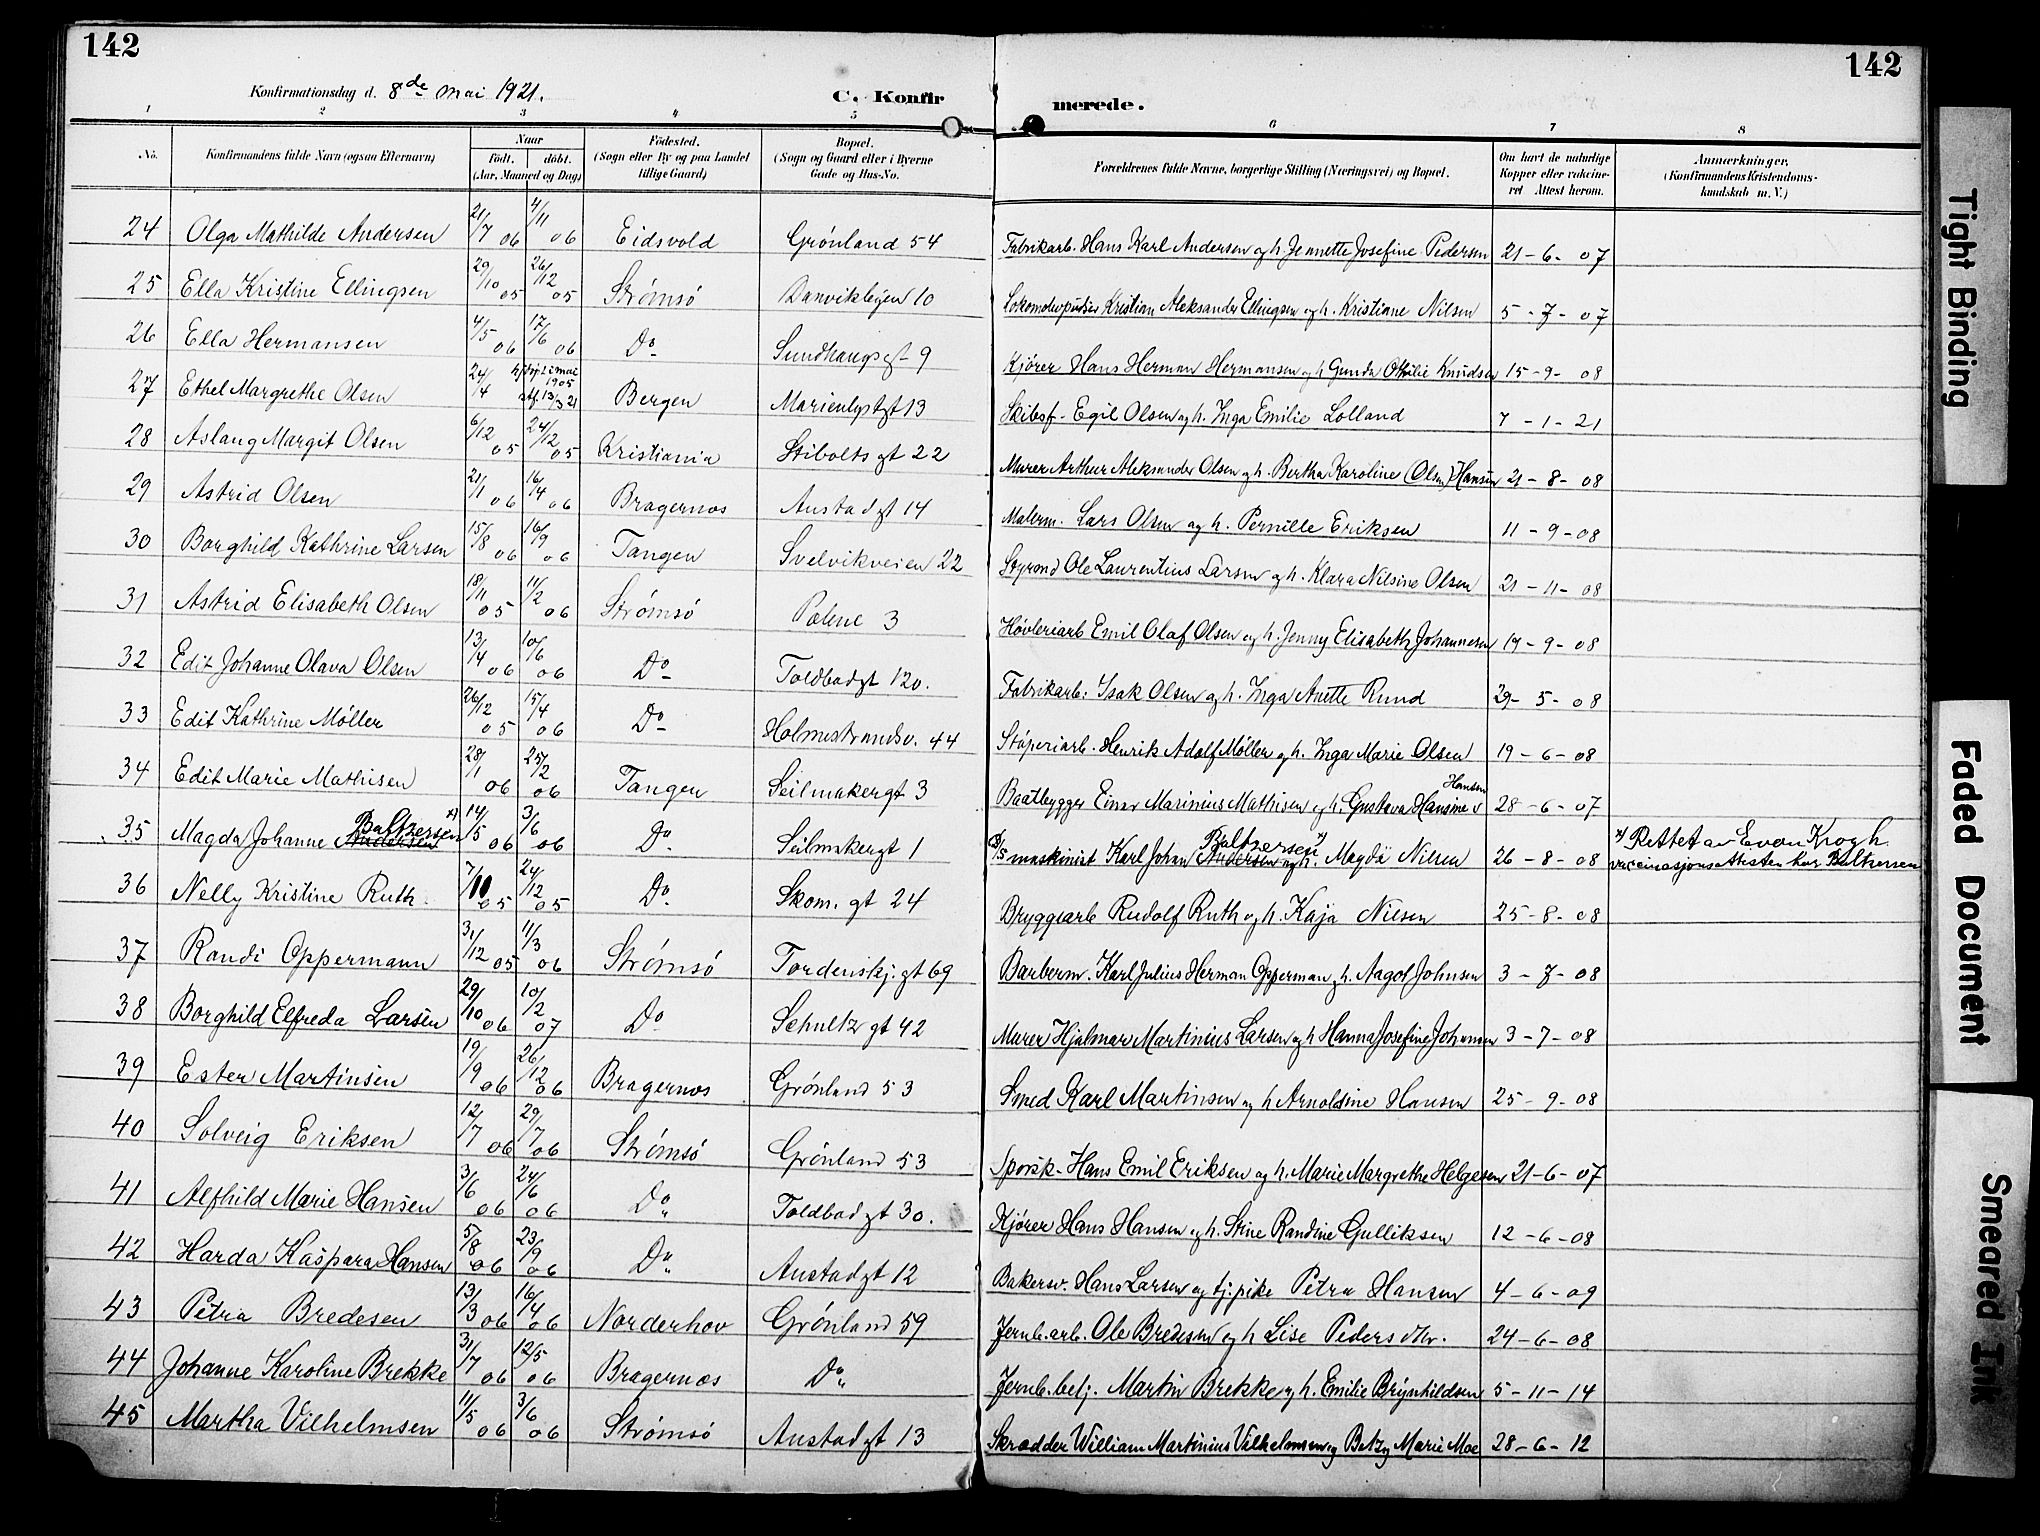 142
142
Konfirmationsdag d. 8de mai 1921.
C. Konfir merede.
1 2 3 4 5 6 7 8
No. Konfirmandens fulde Navn (ogsaa Efternavn) Naar födt. döbt. (Aar, Maaned og Dag) Födested. (Sogn eller By og paa Landet tillige Gaard) Bopæl. (Sogn og Gaard eller i Byerne Gade og Hus-No. Forældrenes fulde Navne, borgerlige Stilling (Næringsvei) og Bopæl. Om havt de naturlige Kopper eller vakcineret Attest herom. Anmærkninger. (Konfirmandens Kristendomskundskab m. V.)
24 Olga Mathilde Andersen 21/7 06 4/11 06 Eidsvold Grønland 54 Fabrikarb. Hans Karl Andersen og h. Jenette Josefine Pedersen 21-6-07
25 Ella Kristine Ellingsen 29/10 05 26/12 05 Strømsö Danvikveien 10 Lokomotivpudser Kristian Aleksander Ellingsen og h. Kristiane Nilsen 5-7-07
26 Ella Hermansen 4/5 06 17/6 06 Do Sundhaugsgt 9 Kjører Hans Herman Hermansen og h Gunda Otilie Knudsen 15-9-08
27 Ethel Margrethe Olsen 24/4 mai 1905 13/3 21 Bergen Marienlystgt 13 Skibsf. Egil Olsen og h. Inga Emilie Lolland 7-1-21
28 Aslaug Margit Olsen 6/12 05 24/12 05 Kristiania Stibolts gt 22 Murer Arthur Aleksander Olsen og h. Bertha Karoline (Olsen) Hansen 21-8-08
29 Astrid Olsen 21/1 06 16/4 06 Bragernes Austadgt 14 Malerm. Lars Olsen og h. Pernille Eriksen 11-9-08
30 Borghild Kathrine Larsen 15/8 06 16/9 06 Tangen Svelvikveien 22 Styrmd Ole Laurentius Larsen og h. Klara Nilsine Olsen 21-11-08
31 Astrid Elisabeth Olsen 18/11 05 11/2 06 Strømsö Pælene 3 Høvleriarb Emil Olaf Olsen og h. Jenny Elisabeth Johannesen 19-9-08
32 Edit Johanne Olava Olsen 13/14 06 10/6 06 Do Toldbodgt 120. Fabrikarb. Isak Olsen og h. Inga Anette Rund 29-5-08
33 Edit Kathrine Möller 26/12 05 15/4 06 Do Holmestrandsv. 44 Støperiarb. Henrik Adolf Møller og h. Inga Marie Olsen 19-6-08
34 Edit Marie Mathisen 28/1 06 25/2 06 Tangen Seilmakergt 3 Baatbygger Einar Marinius Mathisen og h. Gustava Hansine Hansen 28-6-07
35 Magda Johanne Andersen Baltzersen x) 14/5 06 3/6 06 Do Seilmakergt 1 D/S maskinist Karl Johan Andersen Baltzersen x) og h. Magda Nilsen 26-8-08 x) Rettet av Evan Krogh. vaccinasjonsattesten har Balthersen
36 Nelly Kristine Ruth 7/10 05 24/12 05 Do Skom. gt 24 Bryggearb Rudolf Ruth og h. Kaja Nilsen 25-8-08
37 Randi Oppermann 31/12 05 11/3 06 Strømsö Tordenskj. gt 69 Barberm. Karl Julius Herman Opperman og h. Aagot Johnsen 3-7-08
38 Borghild Elfreda Larsen 29/10 06 10/2 07 Do Schultz gt 42 Murer Hjalmar Martinius Larsen og h Hanna Josefine Johansen 3-7-08
39 Ester Martinsen 19/9 06 26/12 06 Bragernes Grønland 53 Smed Karl Martinsen og h Arnoldine Hansen 25-9-08
40 Solveig Eriksen 12/7 06 29/7 06 Strømsö Grønland 53 Sporsk. Hans Emil Eriksen og h. Marie Margrethe Helgesen 21-6-07
41 Alfhild Marie Hansen 3/6 06 24/6 06 Do Toldbodgt 30. Kjører Hans Hansen og h. Stine Randine Gulliksen 12-6-08
42 Harda Kaspara Hansen 5/8 06 23/9 06 Do Austadgt 12 Bakersv. Hans Larsen og tj. pike Petra Hansen 4-6-09
43 Petra Bredesen 13/3 06 16/4 06 Norderhov Grønland 59 Jernb.arb. Ole Bredesen og h Lise Pedersdtr. 24-6-08
44 Johanne Karoline Brekke 31/7 06 12/5 06 Bragernes Do Jernb.betj. Martin Brekke og h. Emilie Brynhildsen 5-11-14
45 Martha Vilhelmsen 11/5 06 3/6 06 Strømsö Austadgt 13 Skrædder William Martinius Vilhelmsen og Betzy Marie Moe 28-6-12
Tight Binding
Faded Document
Smeared Ink